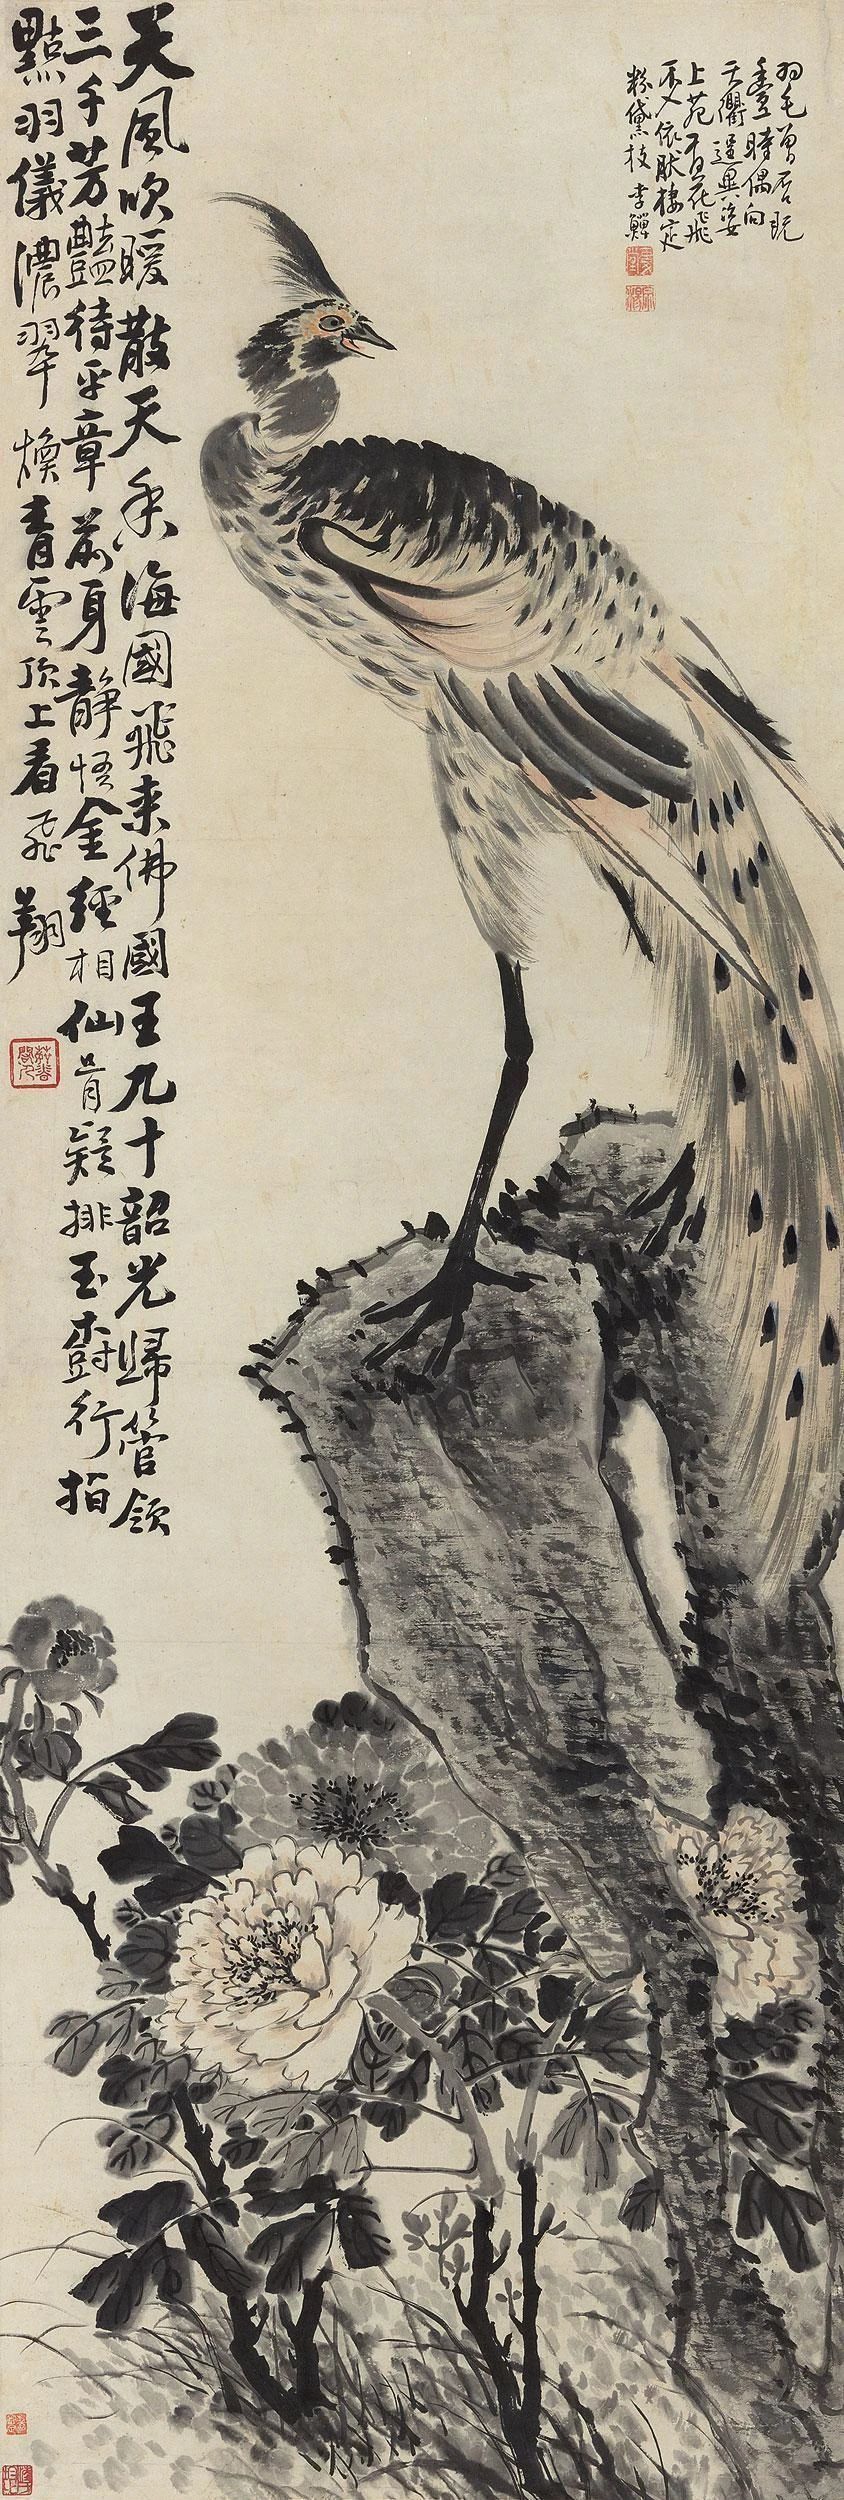 羽毛曾否既
豐時偶向
天衢逞異姿
上苑百花飛
不入依肰棲定
粉黛枝 李鱓
天風吹暖散天香海國飛来佛國王九十韶光歸管領
三千芳豔待平章前身静悟金經相仙骨疑排玉樹行指
點羽儀濃翠煥青雲頂上看飛翔